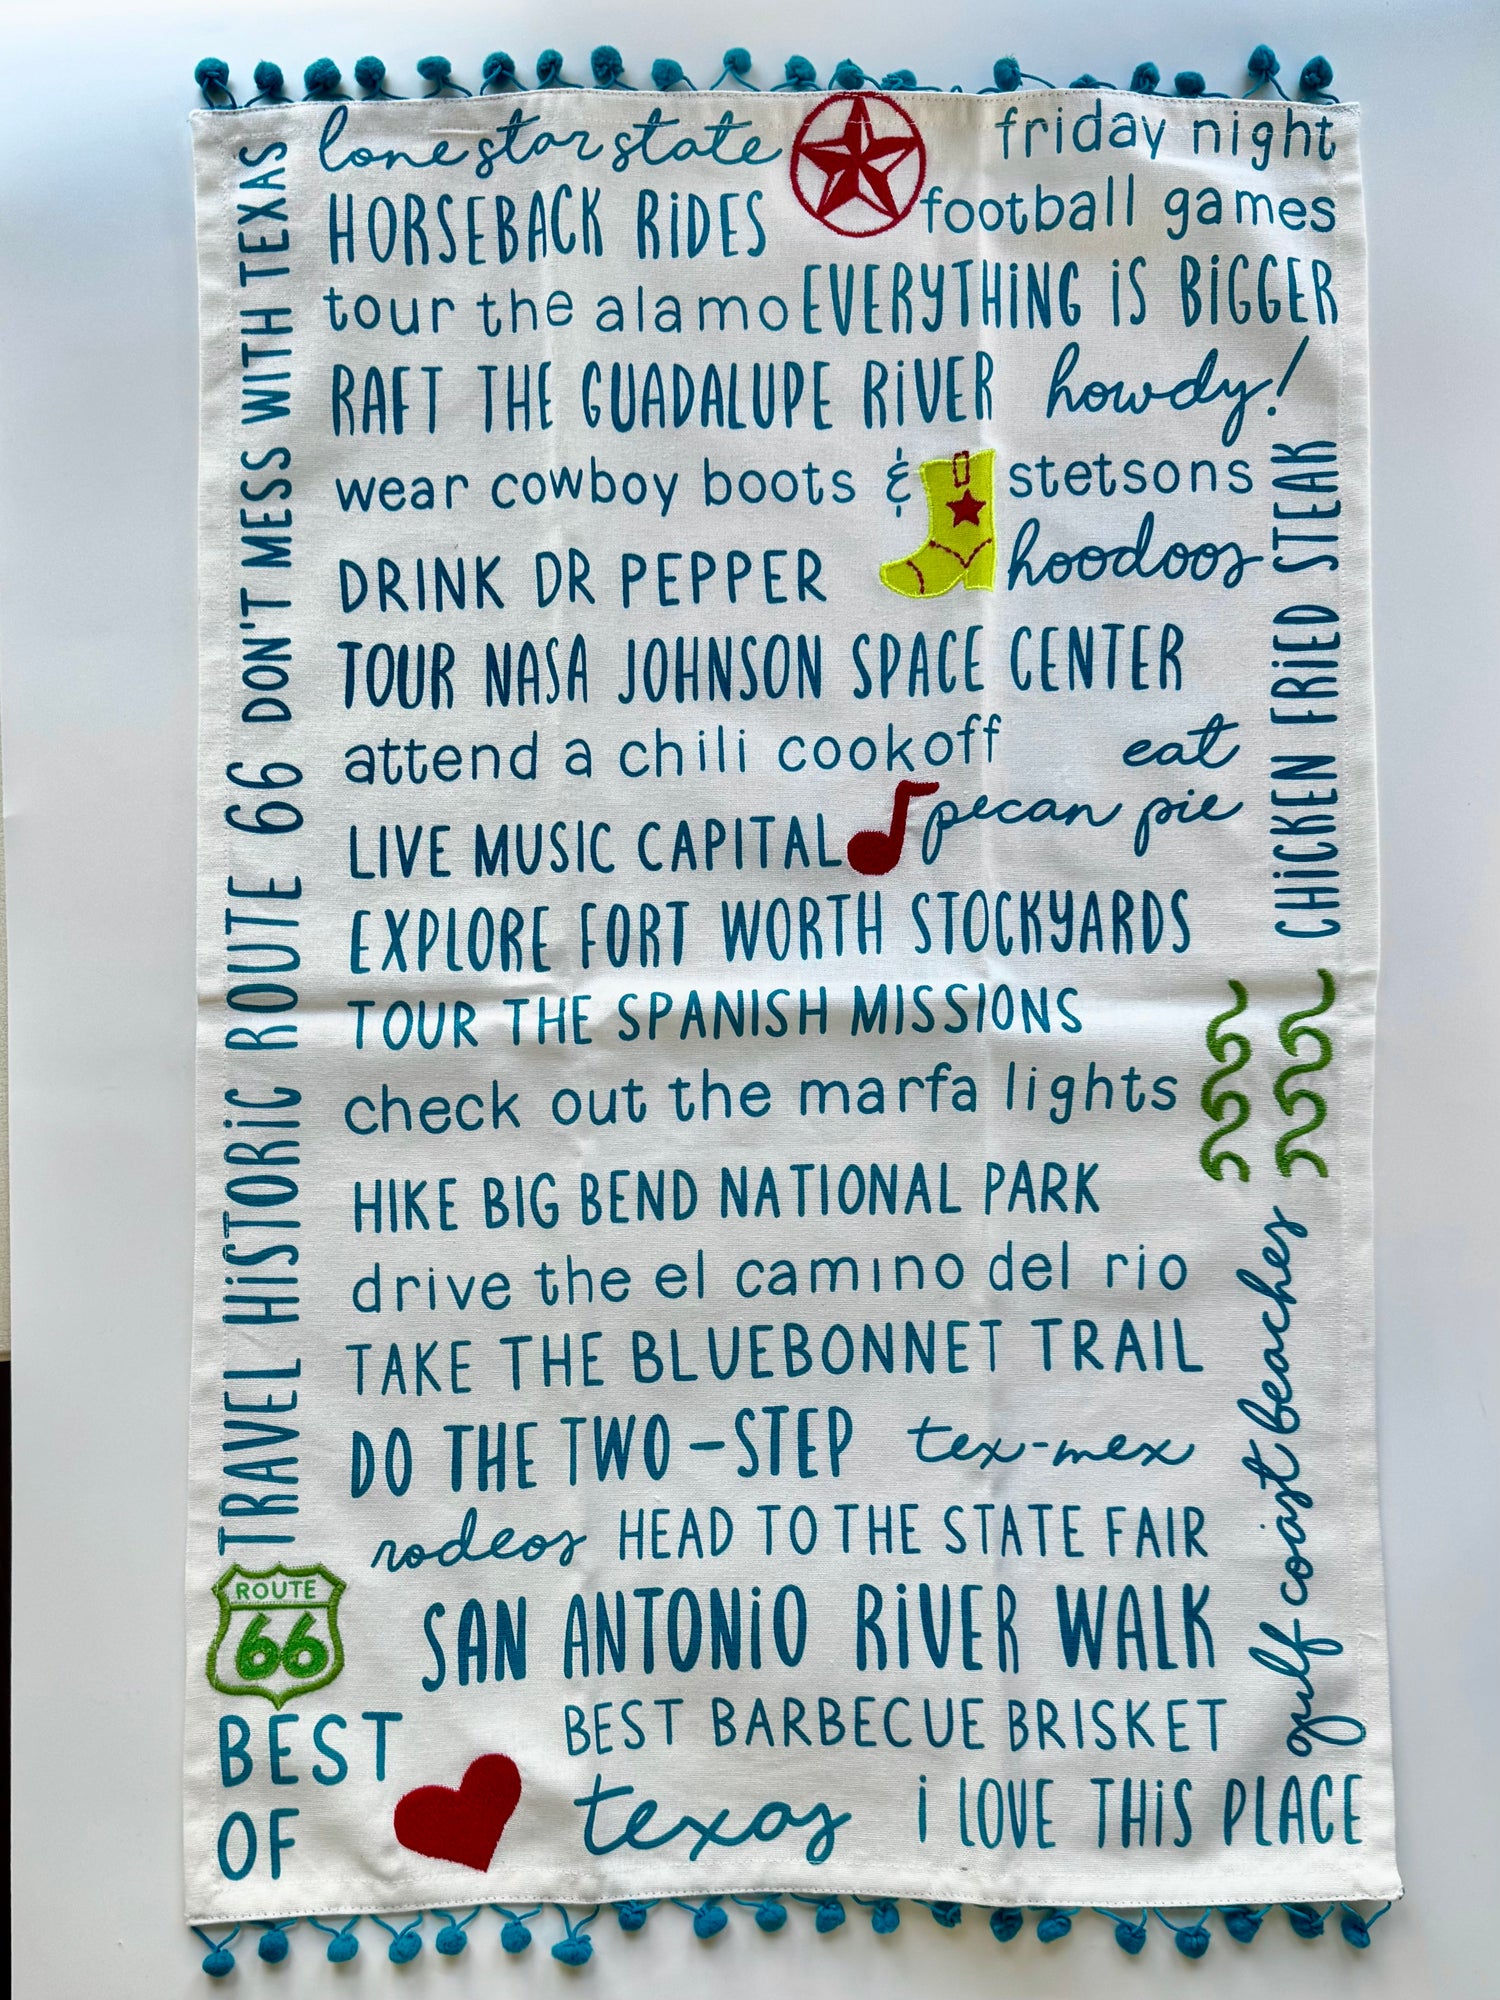 lone star state
friday night
HORSEBACK RiDES
football games
tour the alamo
EVERYTHiNG iS BiGGER
RAFT THE GUADALUPE RiVER
howdy!
wear cowboy boots & stetsons
DRINK DR PEPPER
hoodoos
TOUR NASA JOHNSON SPACE CENTER
attend a chili cookoff
eat
pecan pie
LIVE MUSIC CAPITAL
EXPLORE FORT WORTH STOCKYARDS
TOUR THE SPANISH MISSIONS
check out the marfa lights
HIKE BIG BEND NATIONAL PARK
drive the el camino del rio
TAKE THE BLUEBONNET TRAIL
DO THE TWO-STEP
tex-mex
rodeos
HEAD TO THE STATE FAIR
SAN ANTONiO RiVER WALK
BEST BARBECUE BRISKET
BEST
OF
texas
i LOVE THiS PLACE
DON'T MESS WITH TEXAS
TRAVEL HiSTORiC ROUTE 66
ROUTE
66
CHiCKEN FRiED STEAK
gulf coast beaches